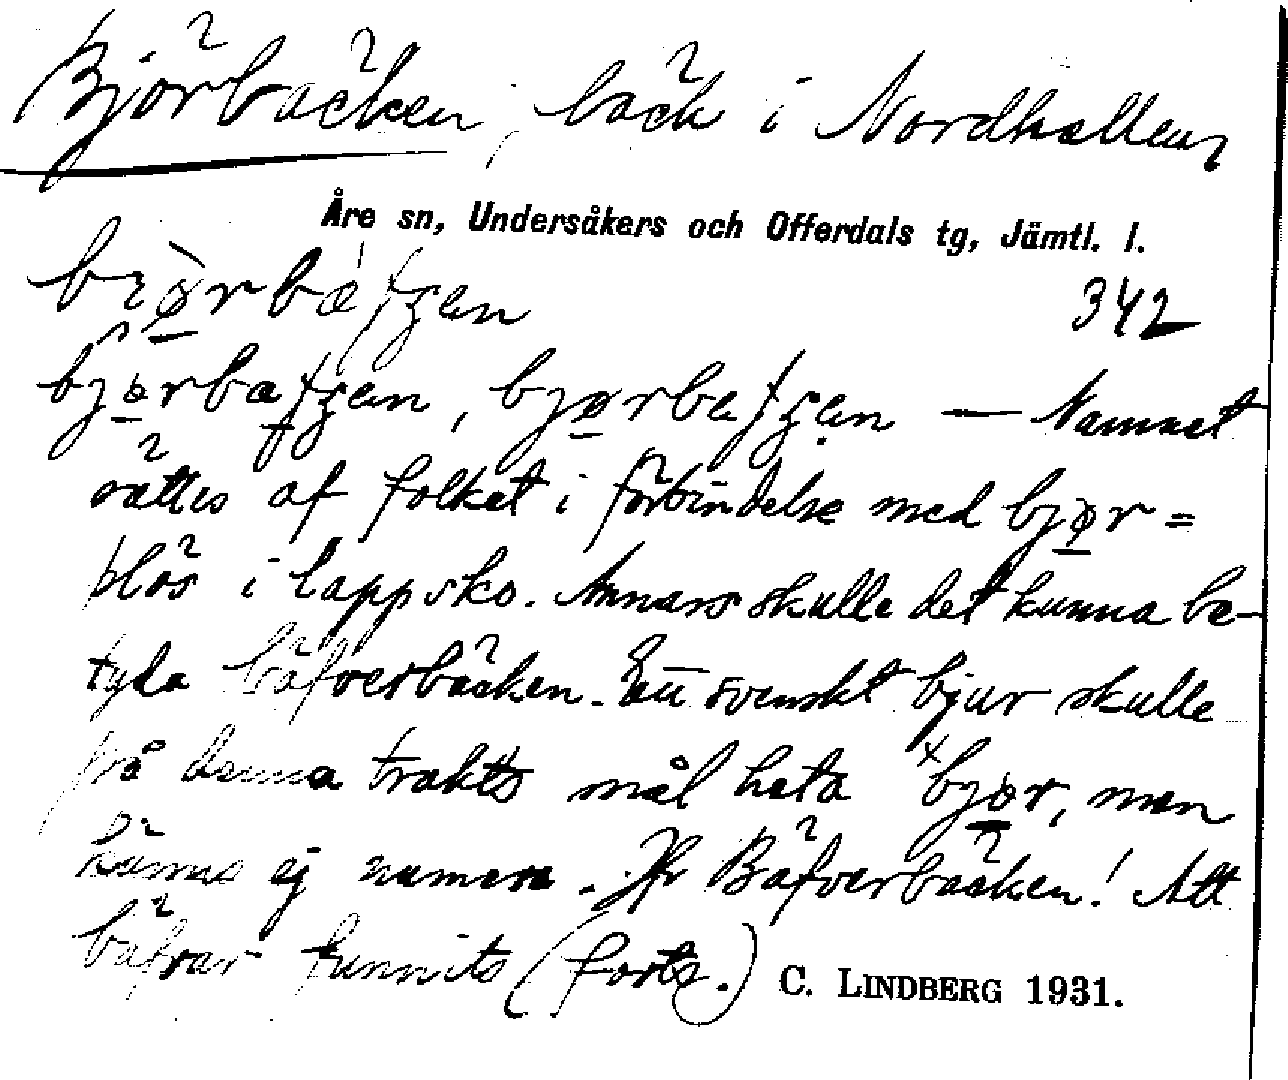 Bjőrbäcken, bäck i Nordhallen,
Åre sn, Undersåkers och Offerdals tg, Jämtl. l.
342
— Namnet
sättes af folket i förbindelse med bjør =
blös i lappsko. Annars skulle det kunna be-
tyda bäfverbäcken. Ett svenskt bjur skulle
på denna trakts mål heta ×bjør, men
kännes ej numera. Jfr Bäfverbäcken! Att
bäfrar funnits (forts.)
C. LINDBERG 1931.